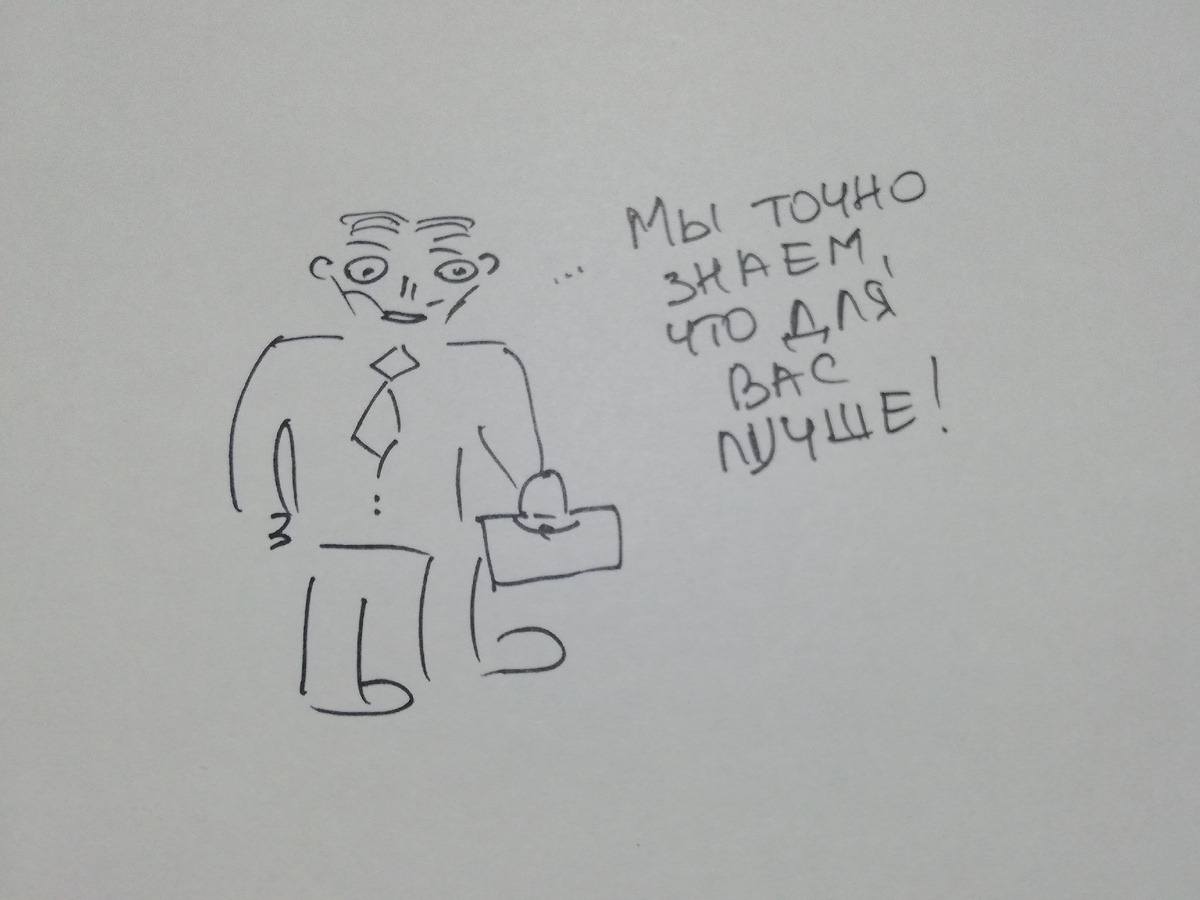 ... Мы точно
знаем,
что для
вас
лучше!